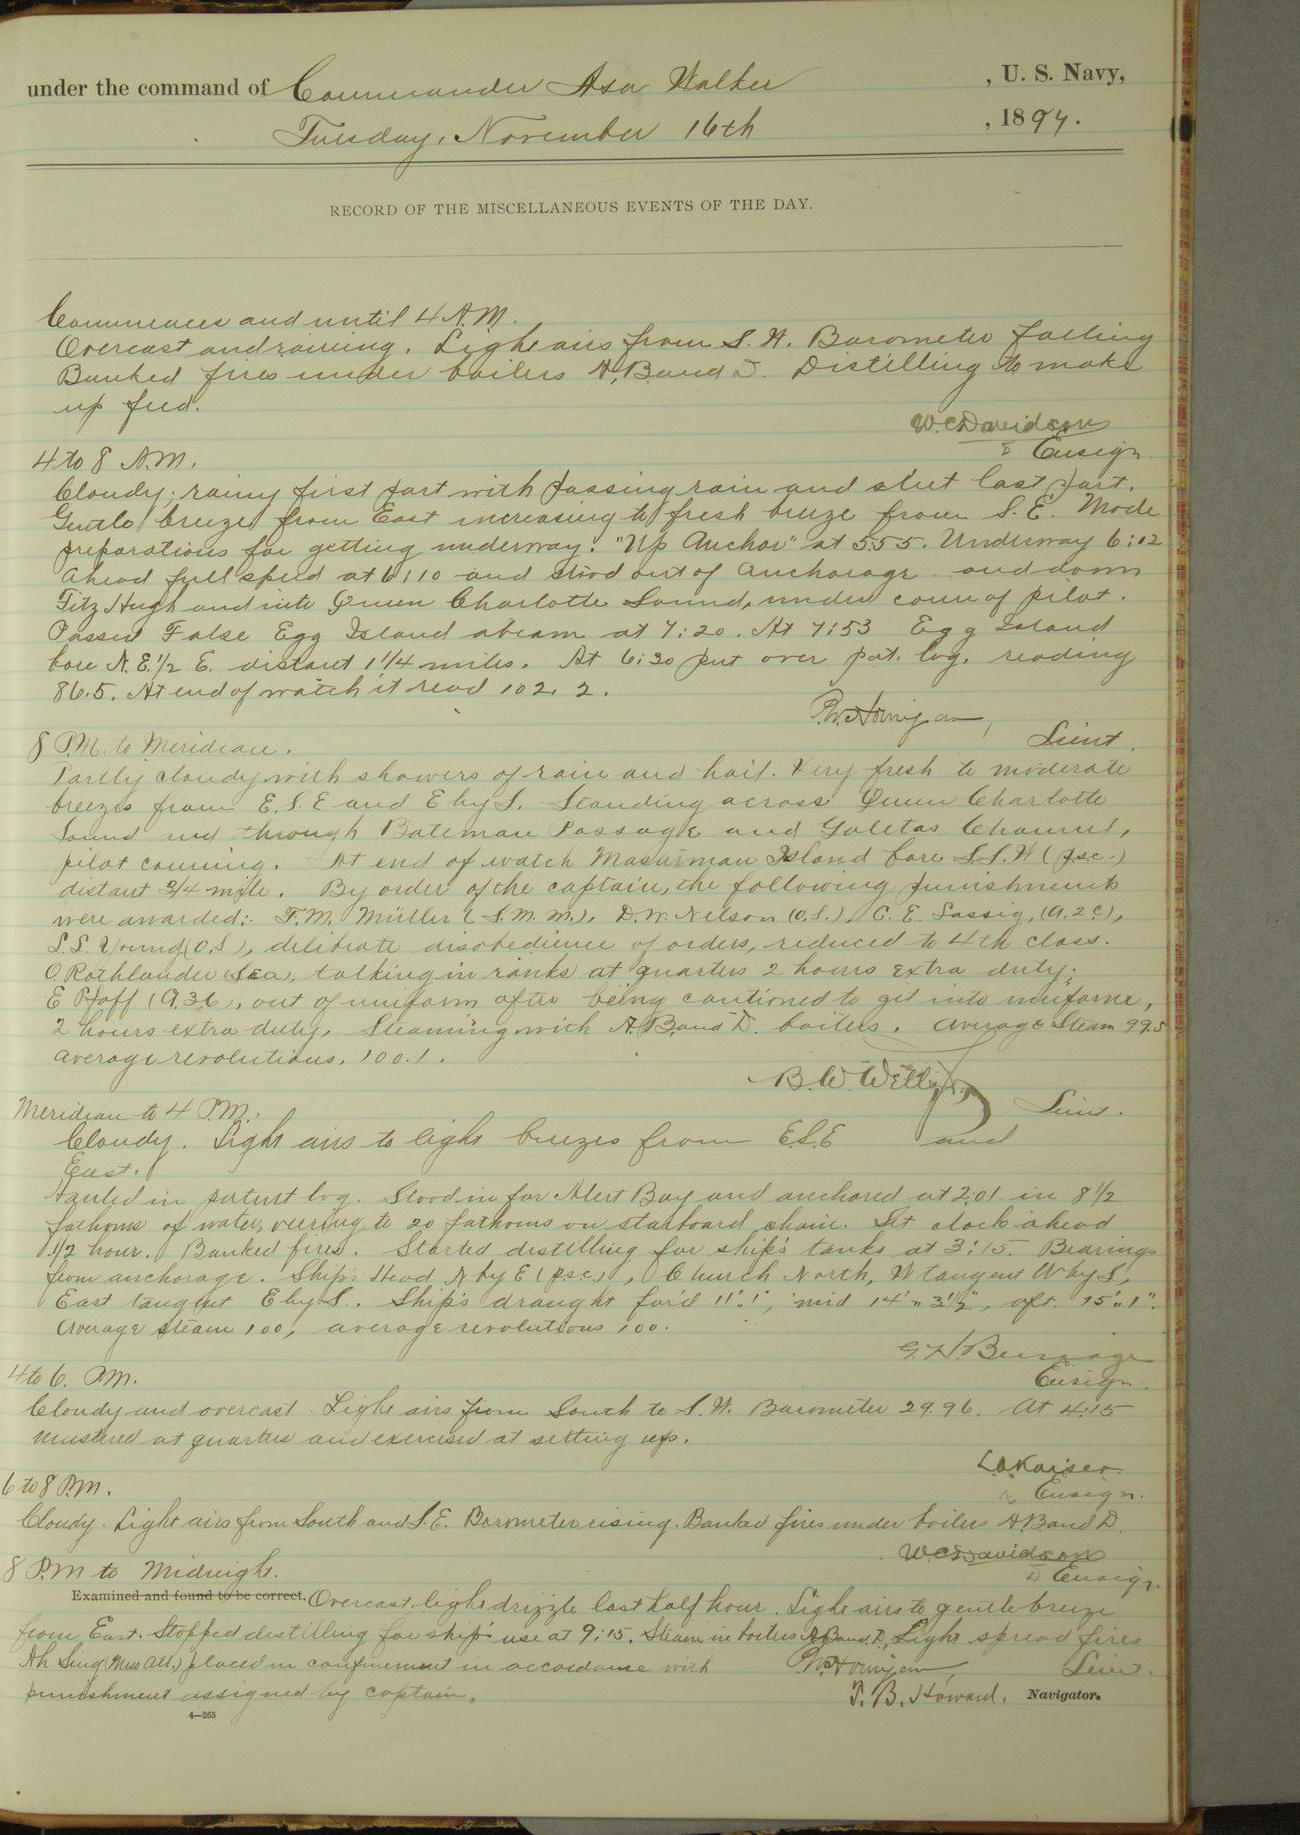 under the command of Commander Asa Walker , U. S. Navy,
Tuesday, November 16th , 1897.
RECORD OF THE MISCELLANEOUS EVENTS OF THE DAY.
Commences and until 4 A.M.
Overcast and raining. Light airs from S. W. Barometer falling
Banked fires under boilers A, B and D. Distilling to make
up feed.
W. C. Davidson
Ensign
4 to 8 A.M.
Cloudy; rainy first part with passing rain and sleet last part.
Gentle breeze from East increasing to fresh breeze from S. E. Made
preparations for getting underway. "Up Anchor" at 5:55. Underway 6:02
Ahead full speed at 6:10 and stood out of anchorage and down
Fitz Hugh and into Queen Charlotte Sound, under conn of pilot.
Passed False Egg Island abeam at 7:20. At 7:53 Egg Island
bore N. E. 1/2 E. distant 1 1/4 miles. At 6:30 put over pat. log, reading
86.5. At end of watch it read 102.2.
P. W. Hourigan,
Lieut.
8 P.M. to Meridian.
Partly cloudy with showers of rain and hail. Very fresh to moderate
breezes from E. S. E and E by S. Standing across Queen Charlotte
Sound and through Bateman Passage and Goletas Channel,
pilot conning. At end of watch Masterman Island bore S. S. W (psc.)
distant 3/4 mile. By order of the captain, the following punishments
were awarded:- F. M. Müller (S. M. M.), D. W. Nelson (O. S.), C. E. Lassig, (A. 2 C),
S. S. Young (O. S), deliberate disobedience of orders, reduced to 4th class.
O. Rothlander (Sea), talking in ranks at quarters 2 hours extra duty;
E Pfaff (A. 3 C), out of uniform after being cautioned to get into uniform,
2 hours extra duty. Steaming with A. B. and D. boilers. Average Steam 99.5
average revolutions, 100.1.
B. W. Wells Jr.
Lieut.
Meridian to 4 P.M.
Cloudy. Light airs to light breezes from E. S. E and
East.
Hauled in patent log. Stood in for Alert Bay and anchored at 2:01 in 8 1/2
fathoms of water, veering to 20 fathoms on starboard chain. Set clock ahead
1/2 hour. Banked fires. Started distilling for ship's tanks at 3:15. Bearings
from anchorage. Ship's Head N by E (p.s.c.), Church North, W tangent W by S,
East tangent E by S. Ship's draught for'd 11' 1", mid 14' 3 1/2", aft. 15' 1".
Average steam 100, average revolutions 100.
G. H. Burrage
Ensign.
4 to 6. P.M.
Cloudy and overcast. Light airs from South to S. W. Barometer 29.96. At 4:15
mustered at quarters and exercised at setting up.
L. A. Kaiser
Ensign.
6 to 8 P.M.
Cloudy. Light airs from South and S. E. Barometer rising. Banked fires under boilers A B and D.
W. C. Davidson
Ensign.
8 P.M to Midnight.
Examined and found to be correct. Overcast, light drizzle last half hour. Light airs to gentle breeze
from East. Stopped distilling for ship's use at 9:15. Steam in boilers A B and D, Light spread fires
Ah Sing (Mess Att.) placed in confinement in accordance with P. W. Hourigan, Lieut.
punishment assigned by captain. T. B. Howard, Navigator.
4—265